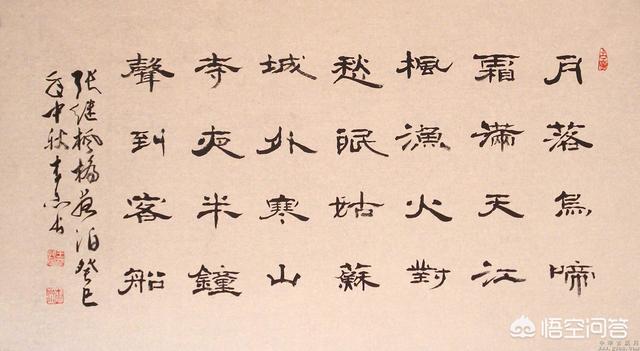 月落烏啼
霜滿天江
楓漁火對
愁眠姑蘇
城外寒山
寺夜半鐘
聲到客船
张继枫橋夜泊癸巳
年中秋书
悟空问答